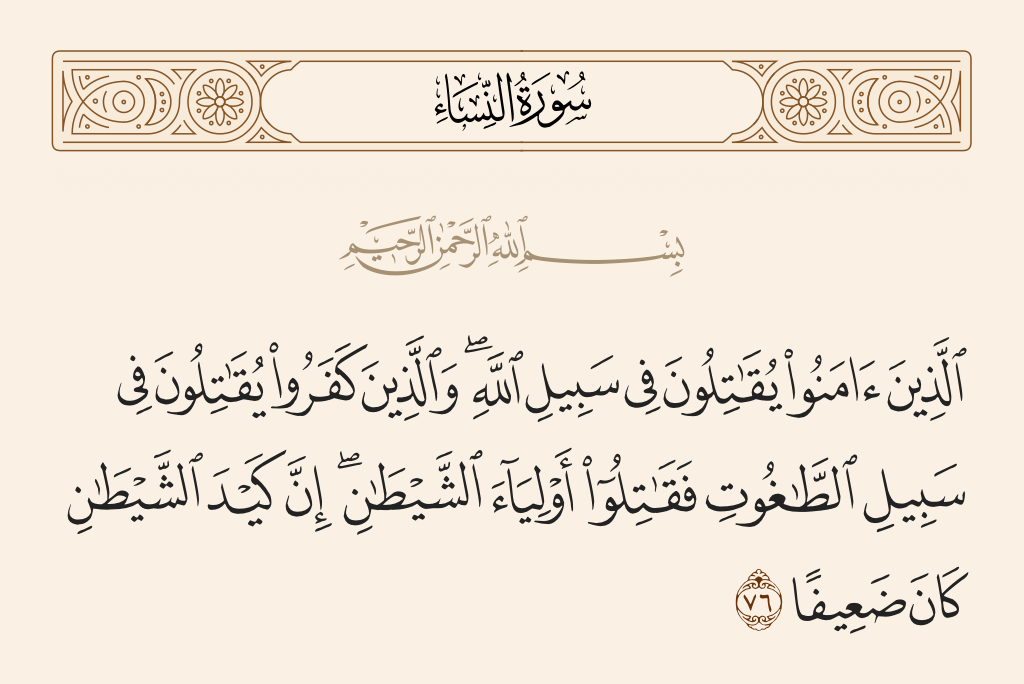 سُورَةُ النِّسَاءِ
بِسْمِ ٱللَّهِ ٱلرَّحْمَٰنِ ٱلرَّحِيمِ
ٱلَّذِينَ ءَامَنُوا۟ يُقَـٰتِلُونَ فِى سَبِيلِ ٱللَّهِ ۖ وَٱلَّذِينَ كَفَرُوا۟ يُقَـٰتِلُونَ فِى
سَبِيلِ ٱلطَّـٰغُوتِ فَقَـٰتِلُوٓا۟ أَوْلِيَآءَ ٱلشَّيْطَـٰنِ ۖ إِنَّ كَيْدَ ٱلشَّيْطَـٰنِ
كَانَ ضَعِيفًا ٧٦